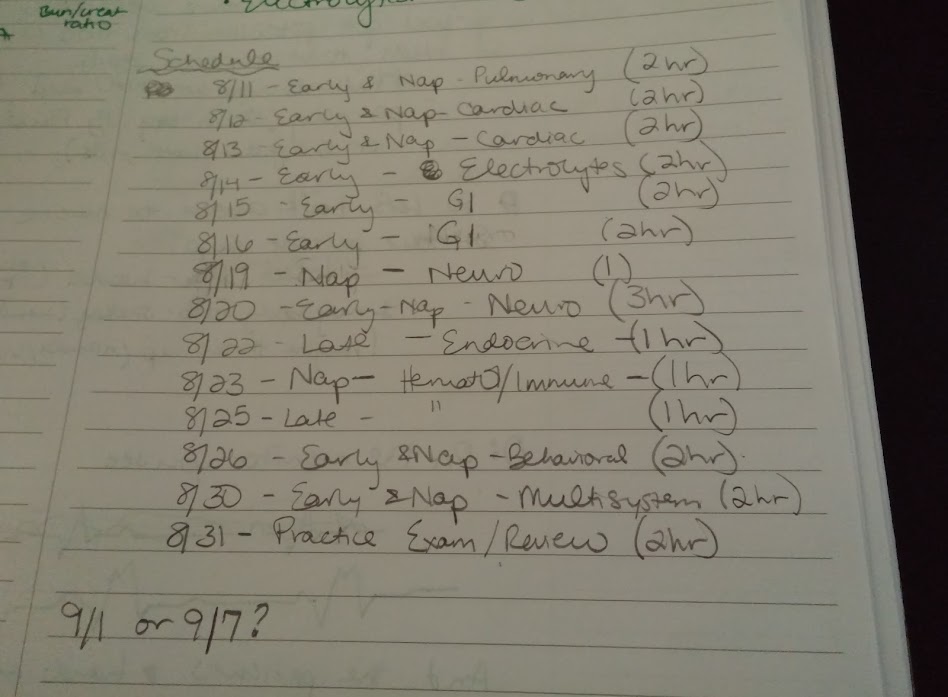 Bun/creat
ratio
Schedule
8/11 - Early & Nap - Pulmonary (2hr)
8/12 - Early & Nap - Cardiac (2hr)
8/13 Early & Nap - Cardiac (2hr)
8/14 - Early - Electrolytes (2hr)
8/15 - Early - GI (2hr)
8/16 - Early - GI (2hr)
8/19 - Nap - Neuro (1)
8/20 - Early - Nap - Neuro (3hr)
8/22 - Late - Endocrine - (1hr)
8/23 - Nap - Hemato/Immune - (1hr)
8/25 - Late - " (1hr)
8/26 - Early & Nap - Behavioral (2hr)
8/30 - Early & Nap - Multisystem (2hr)
8/31 - Practice Exam/Review (2hr)
9/1 or 9/7?